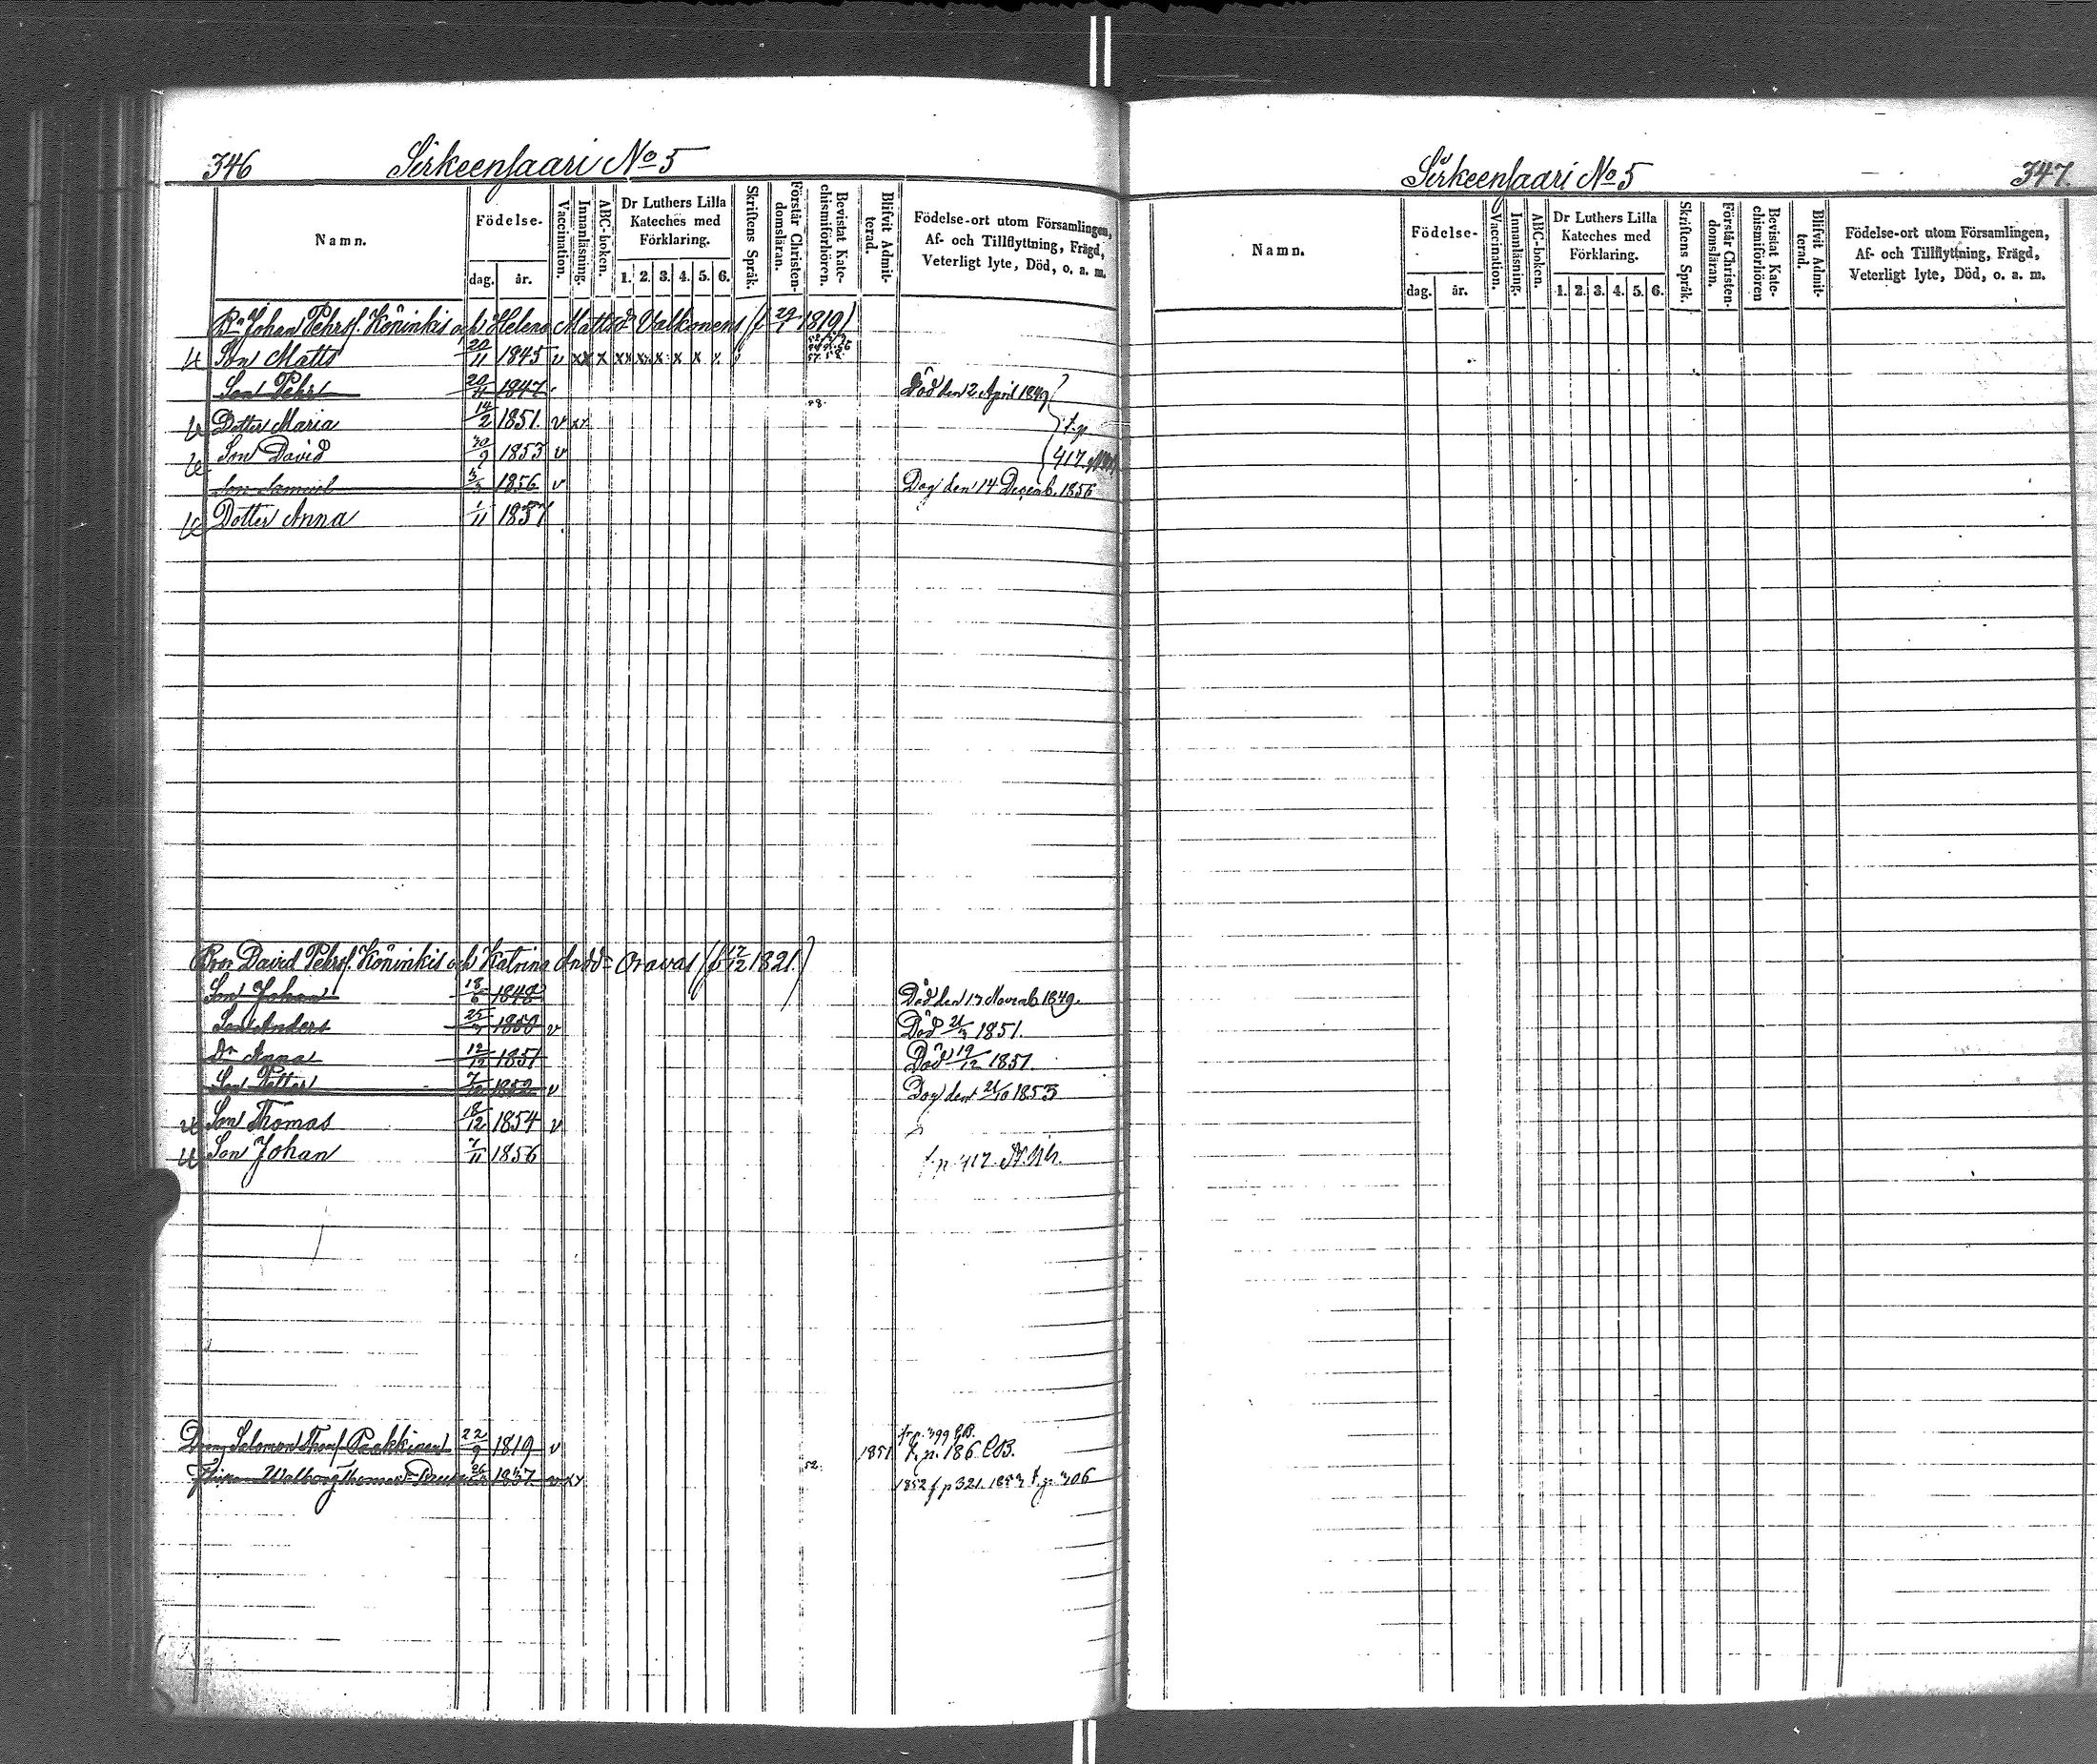 346 Sirkeensaari No 5
Namn.
Födelse-
dag. år.
Vaccination.
Innanläsning.
ABC-boken.
Dr Luthers Lilla
Kateches med
Förklaring.
1. 2. 3. 4. 5. 6.
Skriftens Språk.
Förstår Christen-
domsläran.
Bevistat Kate-
chismiförhören.
Blifvit Admit-
terad.
Födelse-ort utom Församlingen,
Af- och Tillflyttning, Frägd,
Veterligt lyte, Död, o. a. m.
Johan Pehrss. Köninkis och Helena Mattsdr Valkonens 1819)
Son Matts 20/11 1845 v xx x xx xx x x x x
Son Pehr 20/11 1847 Död den 2 April 1849
Dotter Maria 14/2 1851. v xx t. p.
Son David 30/9 1853 v 417.
Son Samuel 1856 v Dog den 14 Decemb. 1856
Dotter Anna 1/11 1857
Bror David Pehrss. Köninkis och Katrina Andd= Oravas 1821.)
Son Johan 18/6 1848 Död den 13 Novemb 1849.
Son Anders 1850 v Död 1851.
Dr Anna 12/12 1851 Död 19/12 1851.
Son Petter 1852 v Dog den 21/10 1853
Son Thomas 18/12 1854 v
Son Johan 7/11 1856 t. p 417. N.
Dräng Salomon Thoss. Paakkinen 22/9 1819 v 1851 fr p. 399 t. p. 186
Walborg Thomasd= 1837 v xx 52. 1852 f. p 321. 1853 t. p. 306
Sirkeensaari No 5 347.
Namn.
Födelse-
dag. år.
Vaccination.
Innanläsning.
ABC-boken.
Dr Luthers Lilla
Kateches med
Förklaring.
1. 2. 3. 4. 5. 6.
Skriftens Språk.
Förstår Christen-
domsläran.
Bevistat Kate-
chismiförhören
Blifvit Admit-
terad.
Födelse-ort utom Församlingen,
Af- och Tillflyttning, Frägd,
Veterligt lyte, Död, o. a. m.